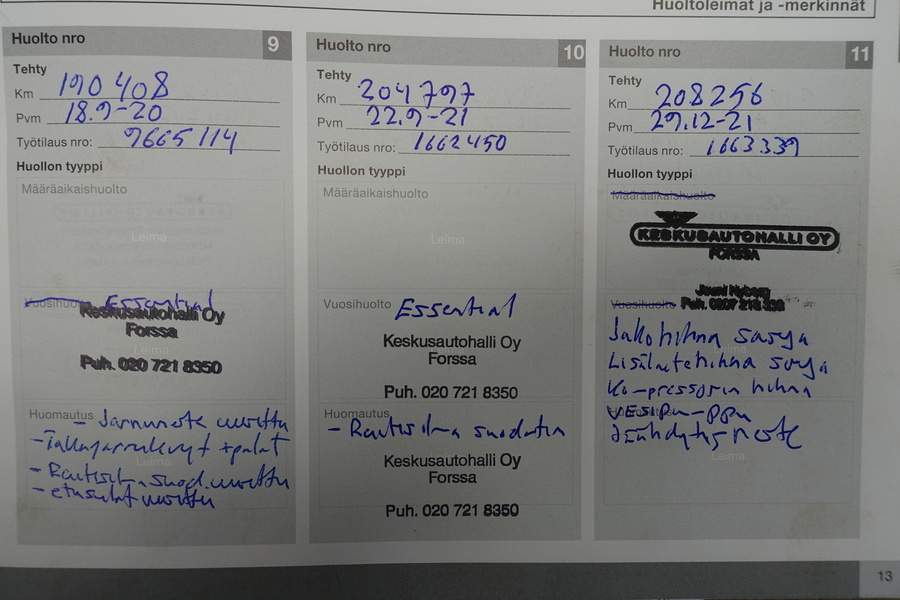 Huoltoleimat ja -merkinnät
Huolto nro 9
Tehty
Km 190 408
Pvm 18.9-20
Työtilaus nro: 9665114
Huollon tyyppi
Määräaikaishuolto
Leima
Vuosihuolto Essential
Keskusautohalli Oy
Forssa
Leima
Puh. 020 721 8350
Huomautus - Jarruneste uusittu
- Takajarrulevyt + palat
Leima
- Raitisilma suod. uusittu
- etusulat uusittu
Huolto nro 10
Tehty
Km 204 797
Pvm 22.9-21
Työtilaus nro: 1662450
Huollon tyyppi
Määräaikaishuolto
Leima
Vuosihuolto Essential
Keskusautohalli Oy
Forssa
Puh. 020 721 8350
Huomautus
- Raitisilma suodatin
Keskusautohalli Oy
Forssa
Puh. 020 721 8350
Huolto nro 11
Tehty
Km 208256
Pvm 29.12-21
Työtilaus nro: 1663339
Huollon tyyppi
Määräaikaishuolto
KESKUSAUTOHALLI OY
FORSSA
Jouni Nyberg
Vuosihuolto Puh. 0207 218
Jakohihna sarja
Lisälaitehihna sarja
Kompressorin hihna
Vesipumppu
Jäähdytysneste
Leima
13